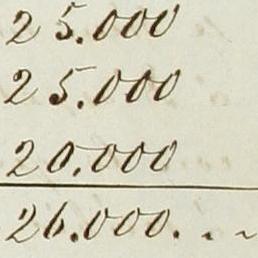 25.000
25.000
20.000
26.000. . ~